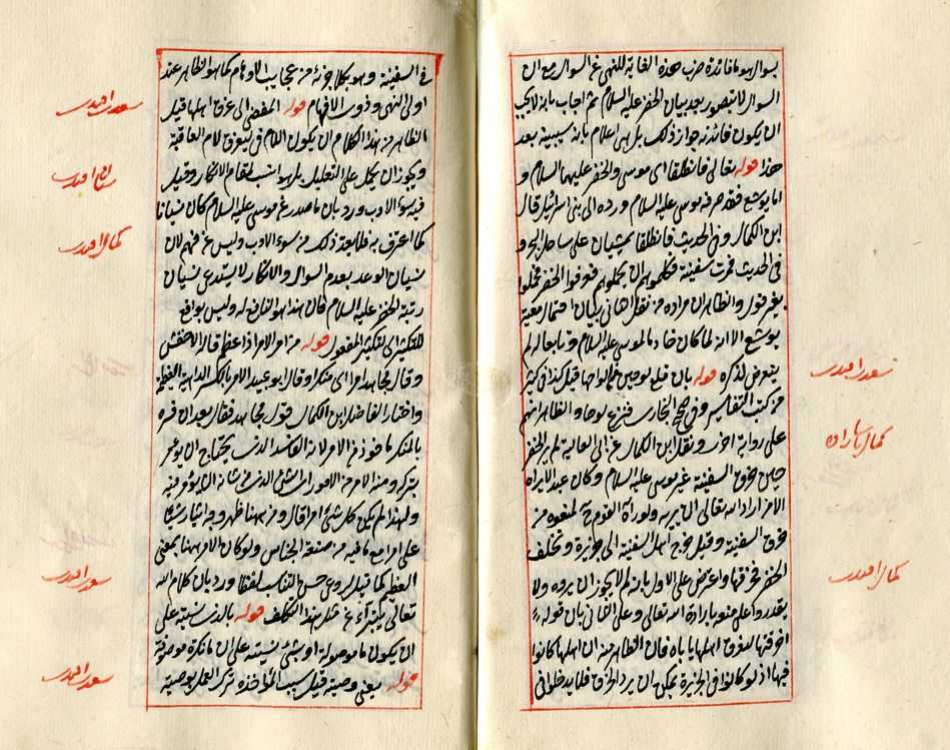 بسوال هو ما فائدة ضرب هذه الغاية للنهي عن السوال مع ان
السوال لا يتصور بعد بيان الخضر عليه السلام ثم اجاب بانه لا يجب
ان يكون فائدته جواز ذلك بل هي اعلام بانه سيبينه بعد
هذا قوله تعالى فانطلقا اى موسى والخضر عليهما السلام و
اما يوشع فقد صرفه موسى عليه السلام ورده الى بنى اسرائيل قال
ابن الكمال وفى الحديث فانطلقا يمشيان على ساحل البحر و
فى الحديث فمرت سفينة فكلموهم ان يحملوهم فعرفوا الخضر فحملوا
بغير نول والظاهر ان مراده من نقل
يوشع الا انه لما كان خادما لموسى عليه السلام وتابعا له لم
يتعرض لذكره قوله بان قلع لوحين من الواحها قيل كذا فى كثير
من كتب التفاسير وفى صحيح البخارى فنزع لوحا والظاهر انهم
على رواية اخرى ونقل ابن الكمال عن ابى العالية لم ير الخضر
حين خرق السفينة غير موسى عليه السلام وكان عبدا لا يراه
الا من اراد الله تعالى ان يريه ولو رآه القوم لمنعوه من
خرق السفينة وقيل خرج اهل السفينة الى جزيرة وتخلف
الخضر فخرقها واعترض على الاول بانه لم لا يجوز ان يروه ولا
يقدروا على منعه بارادة الله تعالى وعلى الثانى بان قوله
اخرقتها لتغرق اهلها ياباه فان الظاهر منه ان اهلها كانوا
فيها اذ لو كانوا فى الجزيرة يمكن ان يرد الخرق فلا يدخلوا فى
سعدى افندى
كمال باشا زاده
كمال افندى
فى السفينة وهو بكلا جزئيه من عجايب الاوهام كما هو الظاهر عند
اولى النهى وذوى الافهام قوله المفضى الى غرق اهلها قيل
الظاهر من هذا الكلام ان يكون اللام فى لتغرق لام العاقبة
ويجوز ان يحمل على التعليل بل هو انسب لمقام الانكار وقيل
فيه سوء الادب ورد بان ما صدر عن موسى عليه السلام كان نسيانا
كما اعترف به فلا يعد ذلك من سوء الادب وليس عن فهم لان
نسيان الوعد بعدم السوال والانكار لا يستدعى نسيان
رتبة الخضر عليه السلام فان هذا هو النافع له وليس بواقع
للتكثير لتكثير المفعول قوله من امر الامر اذا عظم قاله الاخفش
وقال مجاهد امرا اى منكرا وقال ابو عبيد الامر بالكسر الداهية العظيمة
واختار الفاضل ابن الكمال قول مجاهد فقال بعد ان فسره
بالمنكر ماخوذ من الامر لانه الفاسد الذى يحتاج ان يؤمر
بتركه ومنه الامر من الامور اى الشئ الذى من شانه ان يؤمر فيه
ولهذا لم يكن كل شئ امرا قال ومن ههنا ظهر وجه ايثار شيئا
على امرا مع ما فيه من صنعة الجناس ولو كان الامر ههنا بمعنى
العظيم كما قيل لروعى حسن التناسب لفظا ورد بان كلام الله
تعالى يتبرأ عن مثل هذا التكلف قوله بالذى نسيته على
ان يكون ما موصولة او بشئ نسيته على ان ما نكرة موصوفة
قوله يعنى وصيته قيل سبب المؤاخذة ترك العمل بوصيته
سعدى افندى
سنان افندى
كمال افندى
سعدى افندى
سعدى افندى